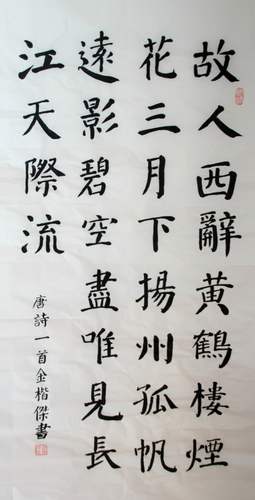 故人西辭黃鶴樓煙
花三月下揚州孤帆
遠影碧空盡唯見長
江天際流
唐詩一首金楷傑書